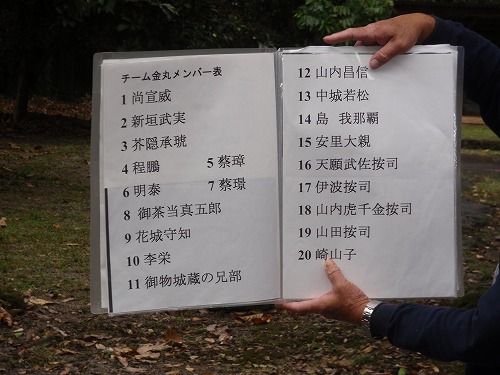 チーム金丸メンバー表
1 尚宣威
2 新垣武実
3 芥隠承琥
4 程鵬 5 蔡璋
6 明泰 7 蔡璟
8 御茶当真五郎
9 花城守知
10 李栄
11 御物城蔵の兄部
12 山内昌信
13 中城若松
14 島 我那覇
15 安里大親
16 天願武佐按司
17 伊波按司
18 山内虎千金按司
19 山田按司
20 崎山子